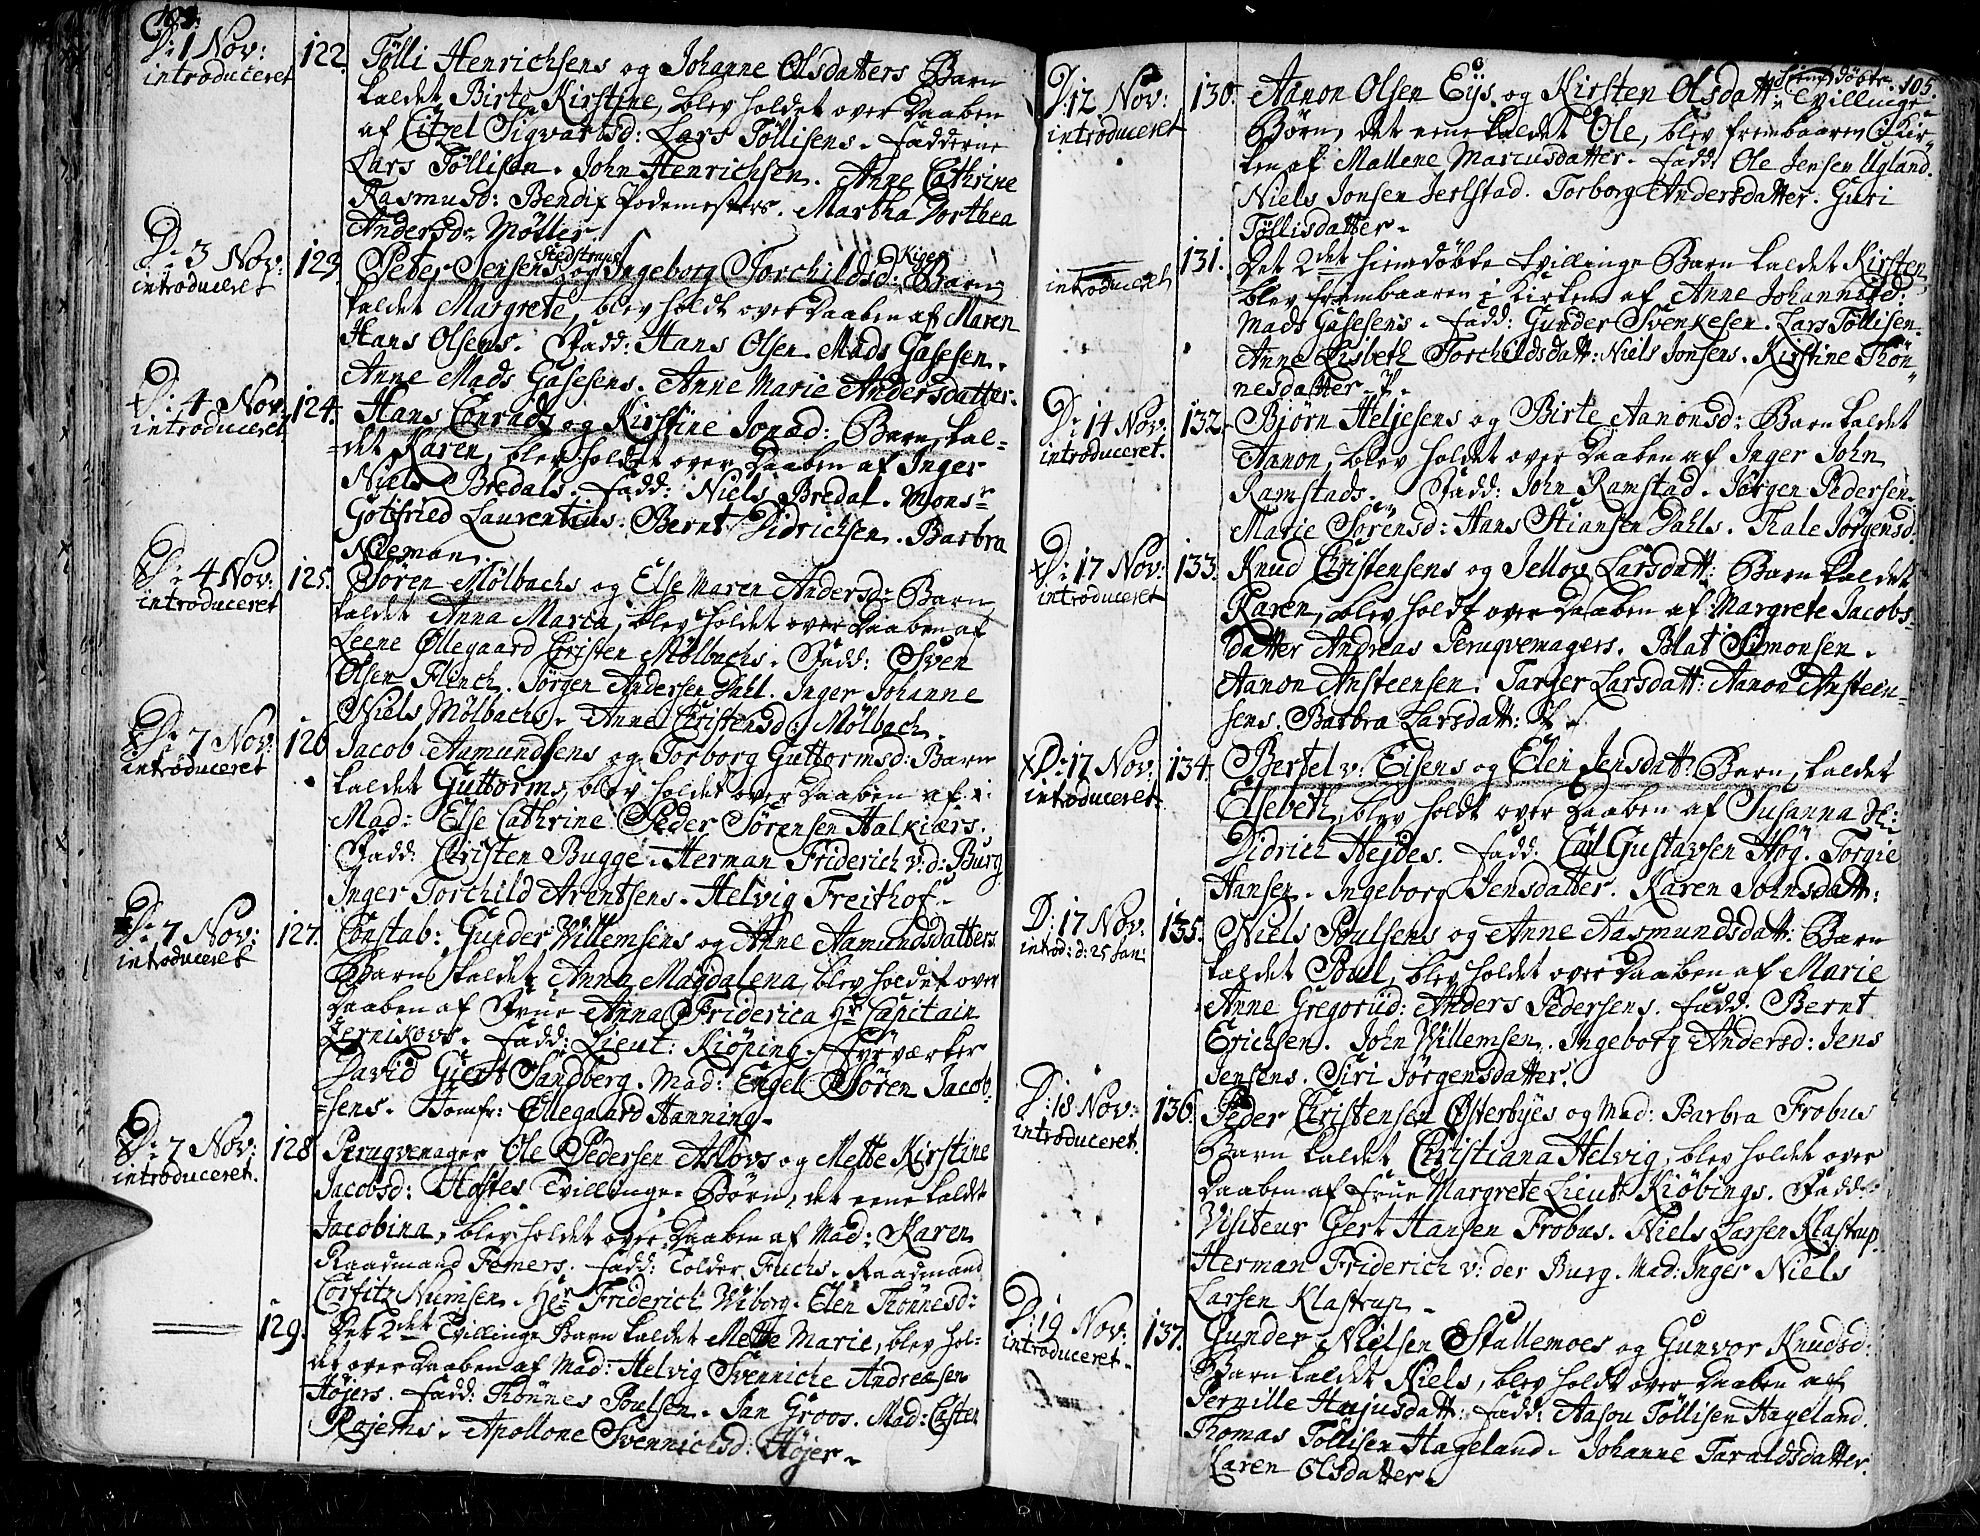 104.
D: 1 Nov:
introduceret
122. Tølli Henrichsens og Johanne Olsdatters Barn
kaldet Birte Kirstine, blev holdet over Daaben
af Citzel Sigvartsd: Lars Töllisens. Fadderne
Lars Töllisen. John Henrichsen. Anne Cathrine
Rasmusd: Bendix Podemesters. Martha Dorthea
Andersd: Møller.
D: 3 Nov:
introduceret
Stedstrups Kige
123. Peter Jensens og Ingeborg Torchildsd: Barn,
kaldet Margrete, blev holdt over Daaben af Maren
Hans Olsens. Fadd: Hans Olsen. Mads Gasesen.
Anne Mads Gasesens. Anne Marie Andersdatter.
D: 4 Nov:
introduceret
124. Hans Conrads og Kirstine Jonæd: Barn, kal-
det Karen, blev holdet over Daaben af Inger
Niels Bredals. Fadd: Niels Bredal. Monsr
Gotfried Laurentius. Bernt Didrichsen. Barbra
Nieman.
D: 4 Nov:
introduceret
125. Søren Mølbachs og Else Maren Andersd: Barn
kaldet Anna Maria, blev holdet over Daaben af
Leene Øllegaard Christen Mølbachs. Fadd: Sven
Olsen Flinch. Jørgen Andersen Dahl. Inger Johanne
Niels Mölbachs. Anne Christensd: Mølbach.
D: 7 Nov:
introduceret
126. Jacob Aamundsens og Torborg Guttormsd: Barn
kaldet Guttorm, blev holdet over Daaben af
Mad: Else Cathrine Peder Sørensen Halkiærs.
Fadd: Christen Bugge. Herman Friderich v: d: Burg
Inger Torchild Arentsens. Helvig Freithof.
D: 7 Nov:
introduceret
127. Constab: Gunder Willemsens og Anne Aamundsdatters
Barn kaldet Anna Magdalena, blev holdet over
Daaben af Frue Anna Friderica Hr Capitain
Zernikovs. Fadd: Lieut: Kiöping. Fyrværker
David Giert Sandberg. Mad: Engel Sören Jacob-
sens. Jomfr: Ellegaard Hanning.
D: 7 Nov:
introduceret.
128. Peruqvemager Ole Pedersen Asløvs og Mette Kirstine
Jacobsd: Hostes Tvillinge-Børn, det eene kaldt
Jacobina, blev holdet over Daaben af Mad: Karen
Raadmand Femers. Fadd: Tolder Fuchs. Raadmand
Corfitz Numsen. Hr Friderich Wiborg. Elen Thönnesd:
129. Det 2det Tvillinge Barn kaldet Mette Marie, blev hol-
det over Daaben af Mad: Helvig Svenniche Andreæsen
Höjers. Fadd: Thönnes Poulsen. Jan Groos. Mad: Casten
Röjems. Apollone Svennichsd: Höjer.
105.
D: 12 Nov:
introduceret
hiemdöbte
130. Aanon Olsen Eijs og Kirsten Olsdatt: Tvillinge
Børn, det eene kaldet Ole, blev frembaaren i Kir-
ken af Mallene Marcusdatter. Fadd: Ole Jensen Ugland.
Niels Jonsen Jerlstad. Torborg Andersdatter. Guri
Töllisdatter.
introduceret
131. Det 2det hiemdöbte Tvillinge Barn kaldet Kirsten
blev frembaaren i Kirken af Anne Johannesd:
Mads Gasesens. Fadd: Gunder Svenkesen. Lars Töllisen.
Anne Lisbeth Torchildsdatt: Niels Jonsens. Kirstine Thön-
nesdatter.
D: 14 Nov:
introduceret.
132. Bjørn Heljesens og Birte Aanonsd: Barn kaldet
Aanon, blev holdet over Daaben af Inger John
Ramstads. Fadd: John Ramstad. Jørgen Pedersen.
Marie Sörensd: Hans Stiansen Dahls. Thale Jörgensd.
D: 17 Nov:
introduceret
133. Knud Christensens og Jellov Larsdatt: Barn kaldet
Karen, blev holdt over Daaben af Margrete Jacobs-
datter Andreas Peruqvemagers. Blat Simonsen.
Aanon Ansteensen. Targer Larsdatt: Aanon Ansteen-
sens. Barbra Larsdatt:
D: 17 Nov:
introduceret
134. Bertel v. Eisens og Elen Jensdatt: Barn, kaldet
Elsebeth, blev holdt over Daaben af Susanna
Didrich Hejdes. Fadd: Carl Gustavsen Hög. Torgie
Hansen. Ingeborg Jensdatter. Karen Johnsdatt:
D: 17 Nov:
introd: d: 25 Jan:
135. Niels Poulsens og Anne Aasmundsdatt: Barn
kaldet Poul, blev holdet over Daaben af Marie
Anne Gregoriid: Anders Pedersens. Fadd: Bernt
Erichsen. John Willemsen. Ingeborg Andersd: Jens
Jensens. Siri Jörgensdatter.
D: 18 Nov:
introduceret.
136. Peder Christensen Østerbyes og Mad: Barbra Frobus
Barn kaldet Christiana Helvig, blev holdet over
Daaben af Frue Margrete Lieut: Kiöbings. Fadd:
Visiteur Gert Hansen Frobus. Niels Larsen Klastrup.
Herman Friderich v: der Burg. Mad: Inger Niels
Larsen Klastrup.
D: 19 Nov:
introduceret.
137. Gunder Nielsen Stallemoes og Gunvor Knudsd:
Barn kaldet Niels, blev holdt over Daaben af
Pernille Hajusdatt: Fadd: Aasou Töllisen Hageland.
Thomas Töllisen Hageland. Johanne Taraldsdatter.
Karen Olsdatter.